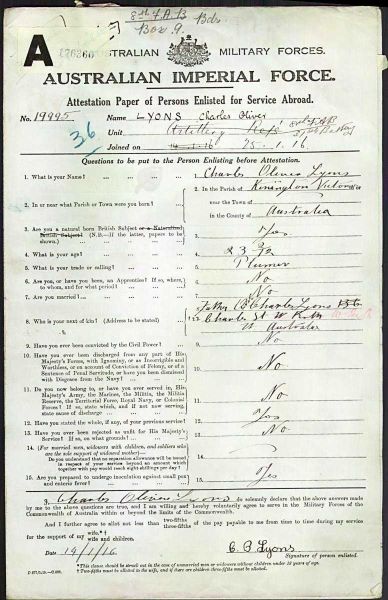 8th F.A.B Bde
Box 9.
A
AUSTRALIAN MILITARY FORCES.
AUSTRALIAN IMPERIAL FORCE.
Attestation Paper of Persons Enlisted for Service Abroad.
No. 19995 Name LYONS Charles Oliver
36
Unit Artillery
Joined on 25.1.16
Questions to be put to the Person Enlisting before Attestation.
1. What is your Name? 1. Charles Oliver Lyons
2. In or near what Parish or Town were you born? 2. In the Parish of Kensington Victoria
near the Town of
in the County of Australia
3. Are you a natural born British Subject or a Naturalized
British Subject? (N.B.—If the latter, papers to be
shown.) 3. Yes
4. What is your age? 4. 23
5. What is your trade or calling? 5. Plumer
6. Are you, or have you been, an Apprentice? If so, where,
to whom, and for what period? 6. No
7. Are you married? 7. No
8. Who is your next of kin? (Address to be stated) 8. Father Charles Lyons 136
Charles St W. Perth
W Australia
9. Have you ever been convicted by the Civil Power? 9. No
10. Have you ever been discharged from any part of His
Majesty's Forces, with Ignominy, or as Incorrigible and
Worthless, or on account of Conviction of Felony, or of a
Sentence of Penal Servitude, or have you been dismissed
with Disgrace from the Navy? 10. No
11. Do you now belong to, or have you ever served in, His
Majesty's Army, the Marines, the Militia, the Militia
Reserve, the Territorial Force, Royal Navy, or Colonial
Forces? If so, state which, and if not now serving,
state cause of discharge 11. No
12. Have you stated the whole, if any, of your previous service? 12. Yes
13. Have you ever been rejected as unfit for His Majesty's
Service? If so, on what grounds? 13. No
14. (For married men, widowers with children, and soldiers who
are the sole support of widowed mother)—
Do you understand that no separation allowance will be issued
in respect of your service beyond an amount which
together with pay would reach eight shillings per day? 14.
15. Are you prepared to undergo inoculation against small pox
and enteric fever? 15. Yes
I, Charles Oliver Lyons do solemnly declare that the above answers made
by me to the above questions are true, and I am willing and hereby voluntarily agree to serve in the Military Forces of the
Commonwealth of Australia within or beyond the limits of the Commonwealth.
And I further agree to allot not less than two-fifths three-fifths of the pay payable to me from time to time during my service
for the support of my wife.*†
wife and children.
Date 19/1/16 C. O. Lyons
Signature of person enlisted.
*This clause should be struck out in the case of unmarried men or widowers without children under 18 years of age.
†Two-fifths must be allotted to the wife, and if there are children three-fifths must be allotted.